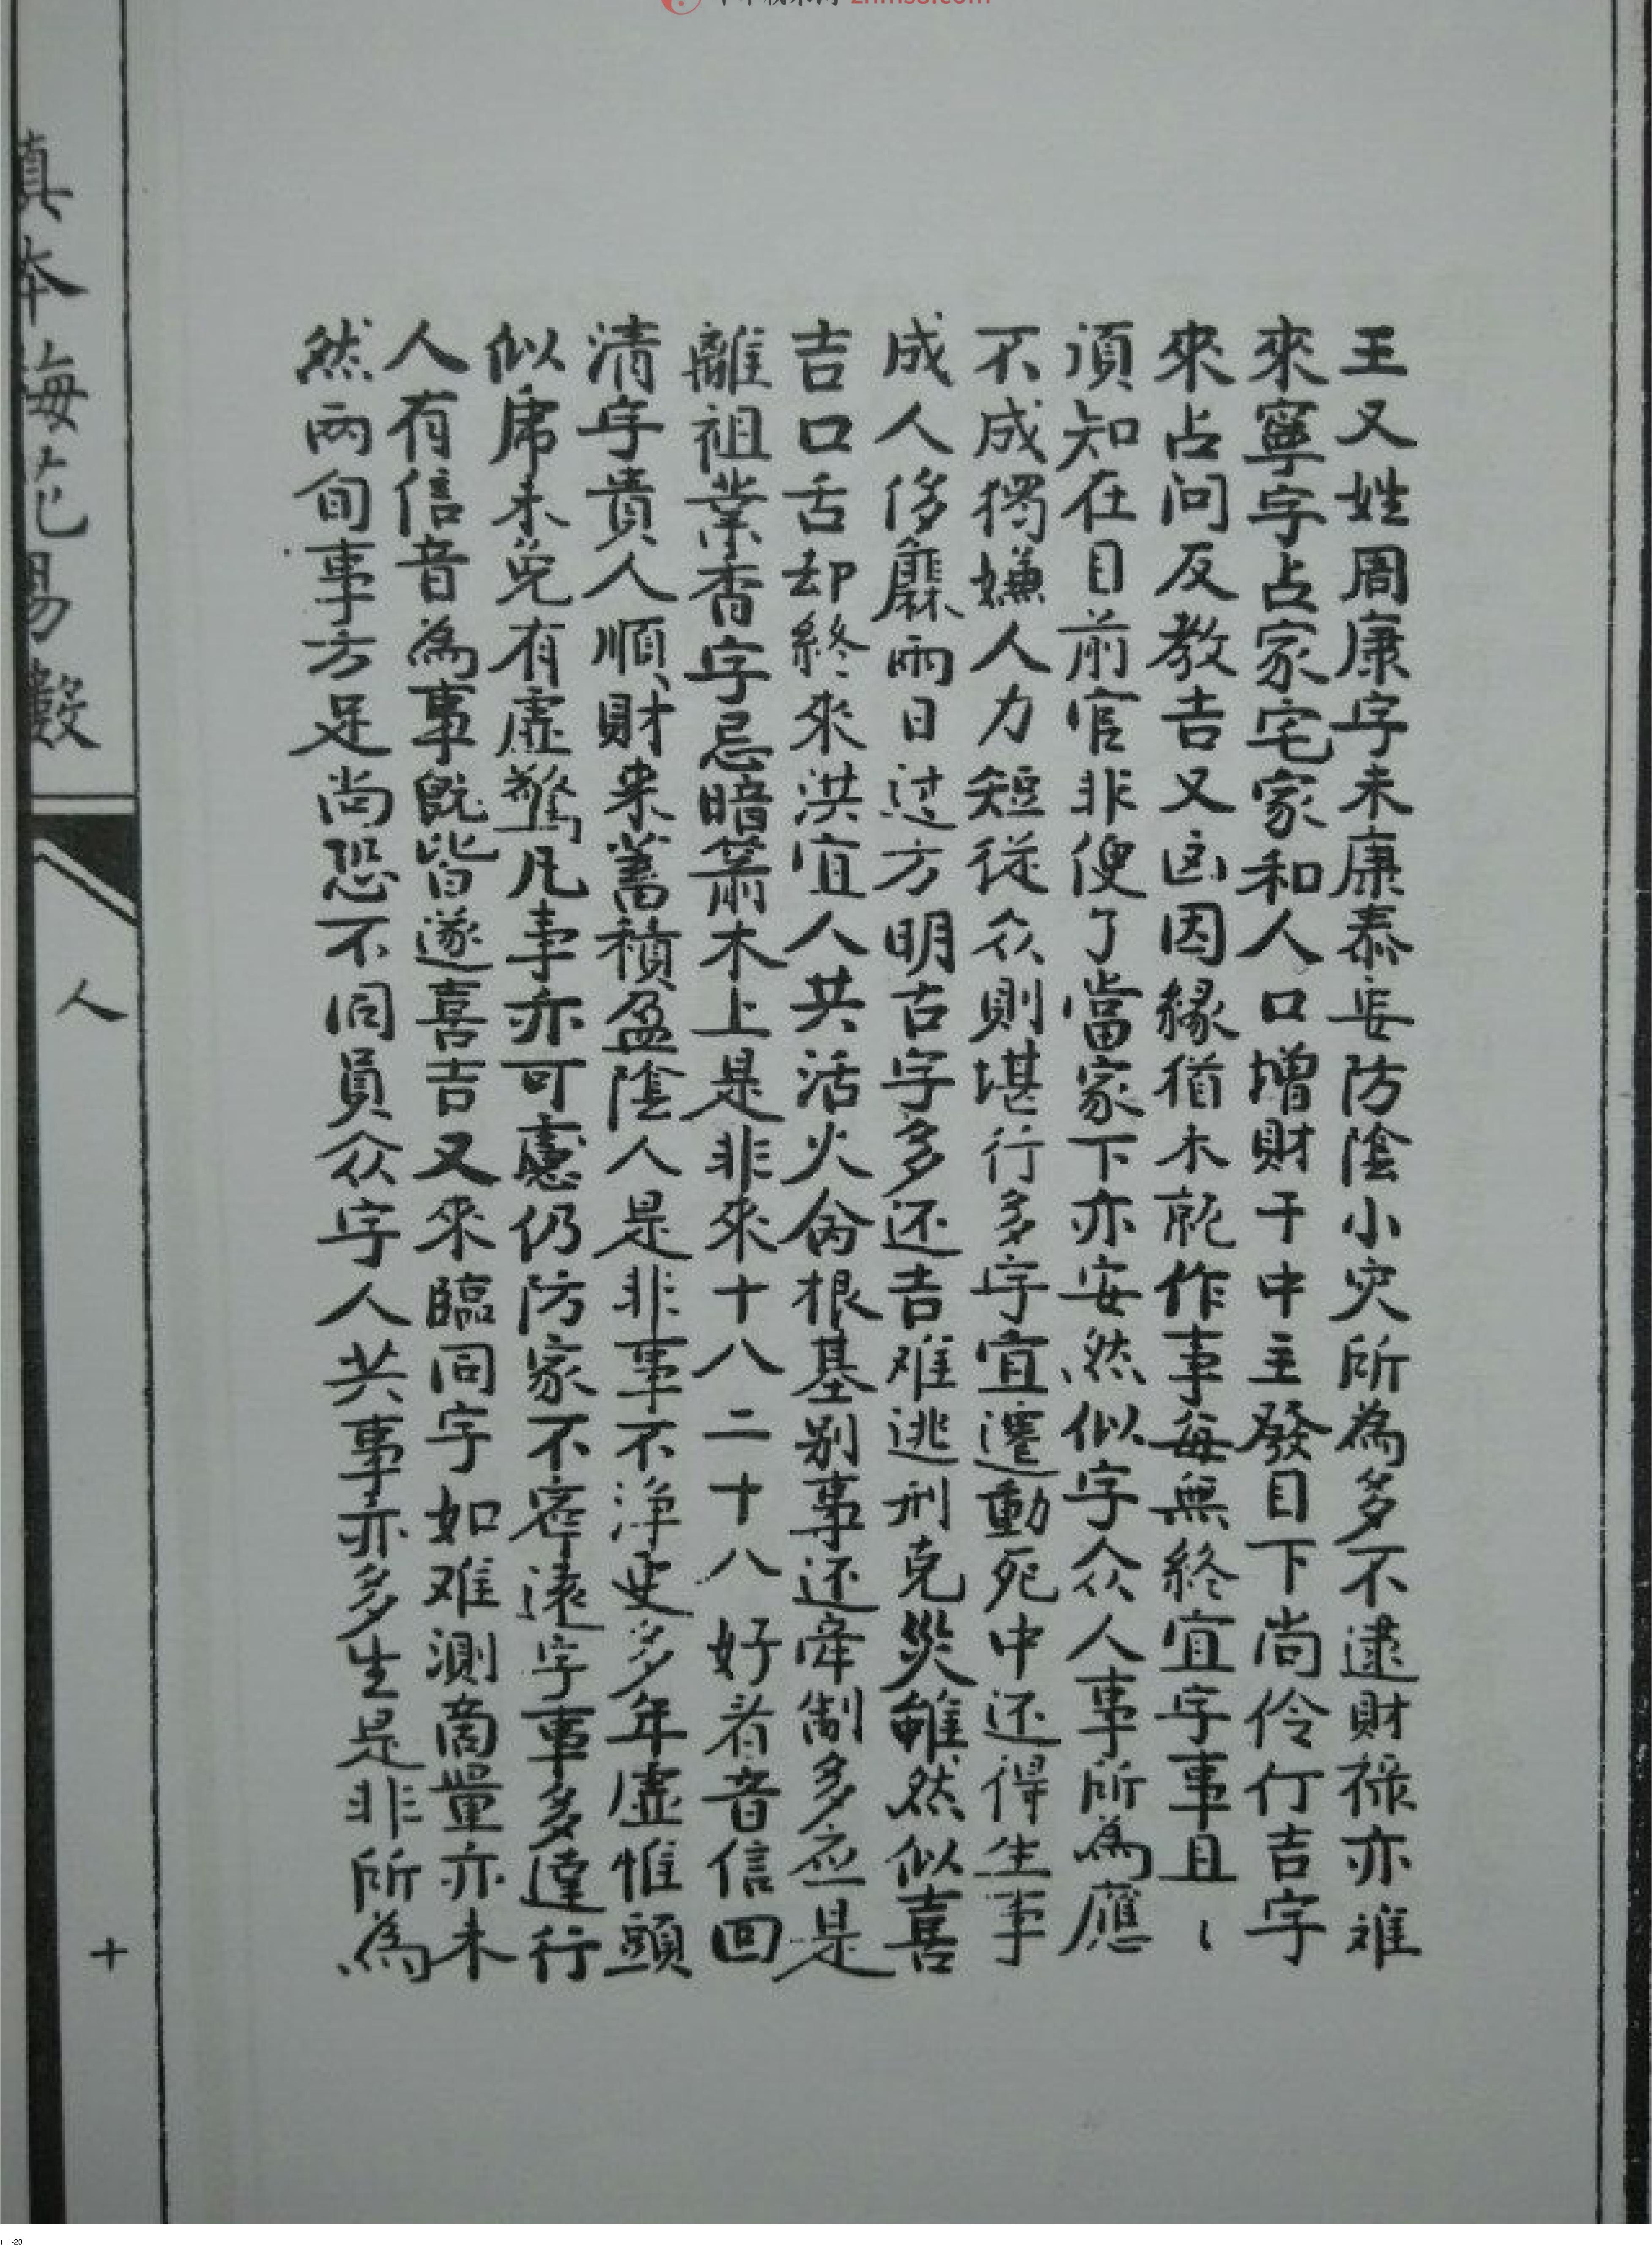 zhms8.com
王又姓周康字未康泰妄防陰小灾所為多不逮財禄亦难
來寧字占家宅家和人口增財干中主發目下尚伶仃吉字
來占问反教吉又凶因緣猶木就作事每無終宜字事且
須知在目前官非便了當家下亦安然似字众人事所為應
不成獨嫌人力短從众則堪行多字宜遷動死中还得生事
成人侈靡兩日过方明古字多还吉难逃刑克災雖然似喜
吉口舌却終來洪宜人共活火畲根基别事还牵制多应是
離祖業香字忌暗箭木上是非來十八二十八好看音信回
清字貴人順財来蓄積盈陰人是非事不浄更多年虛惟頭
似虎未免有虛驚凡事亦可慮仍防家不寧遠字事多達行
人有信音為事既皆遂喜吉又來臨同字如难測商量亦未
然兩旬事方足尚恐不同員众字人共事亦多生是非所為
真本梅花易數
人
十
-20